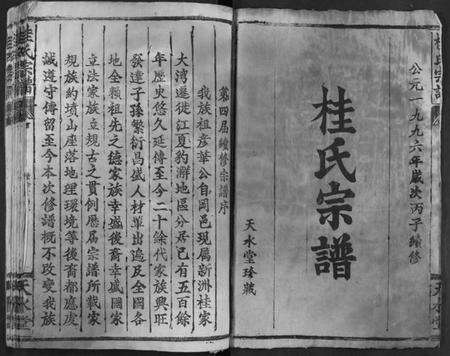 公元一九九六年歲次丙子續修
桂氏宗譜
天水堂珍藏
第四屆續修宗譜序
我族祖彥華公自岡邑現屬新洲桂家
大湾遷徙江夏豹澥地區分居已有五百餘
年歷史悠久延傳至今二十餘代家族興旺
發達子孫繁衍昌盛人材輩出遍及全國各
地全賴祖先之德家族幸盛後裔幸盛國家
立法家族立規古之貫例歷屆宗譜所載家
規族約墳山座落地理環境等後裔都應虔
誠遵守傳留至今本次修譜概不改變我族
桂氏宗譜